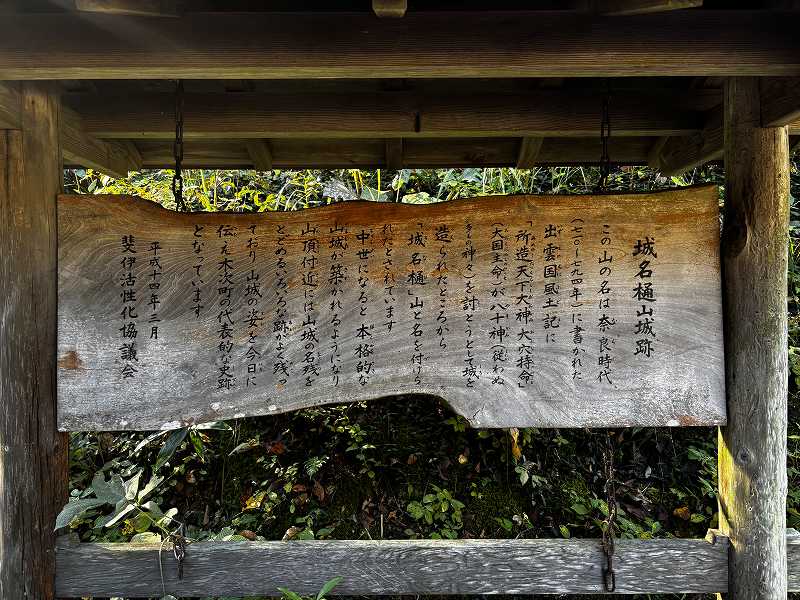 城名樋山城跡
この山の名は奈良時代、
(七一〇〜七九四年)に書かれた
出雲国風土記に
「所造天下大神大穴持命」
(大国主命)が八十神(従わぬ
多くの神々)を討とうとして城を
造られたところから
「城名樋」山と名を付けら
れたとされています
中世になると本格的な
山城が築かれるようになり
山頂付近には山城の名残を
とどめるいろいろな跡がよく残っ
ており山城の姿を今日に
伝え木次町の代表的な史跡
となっています
平成十四年三月
斐伊活性化協議会